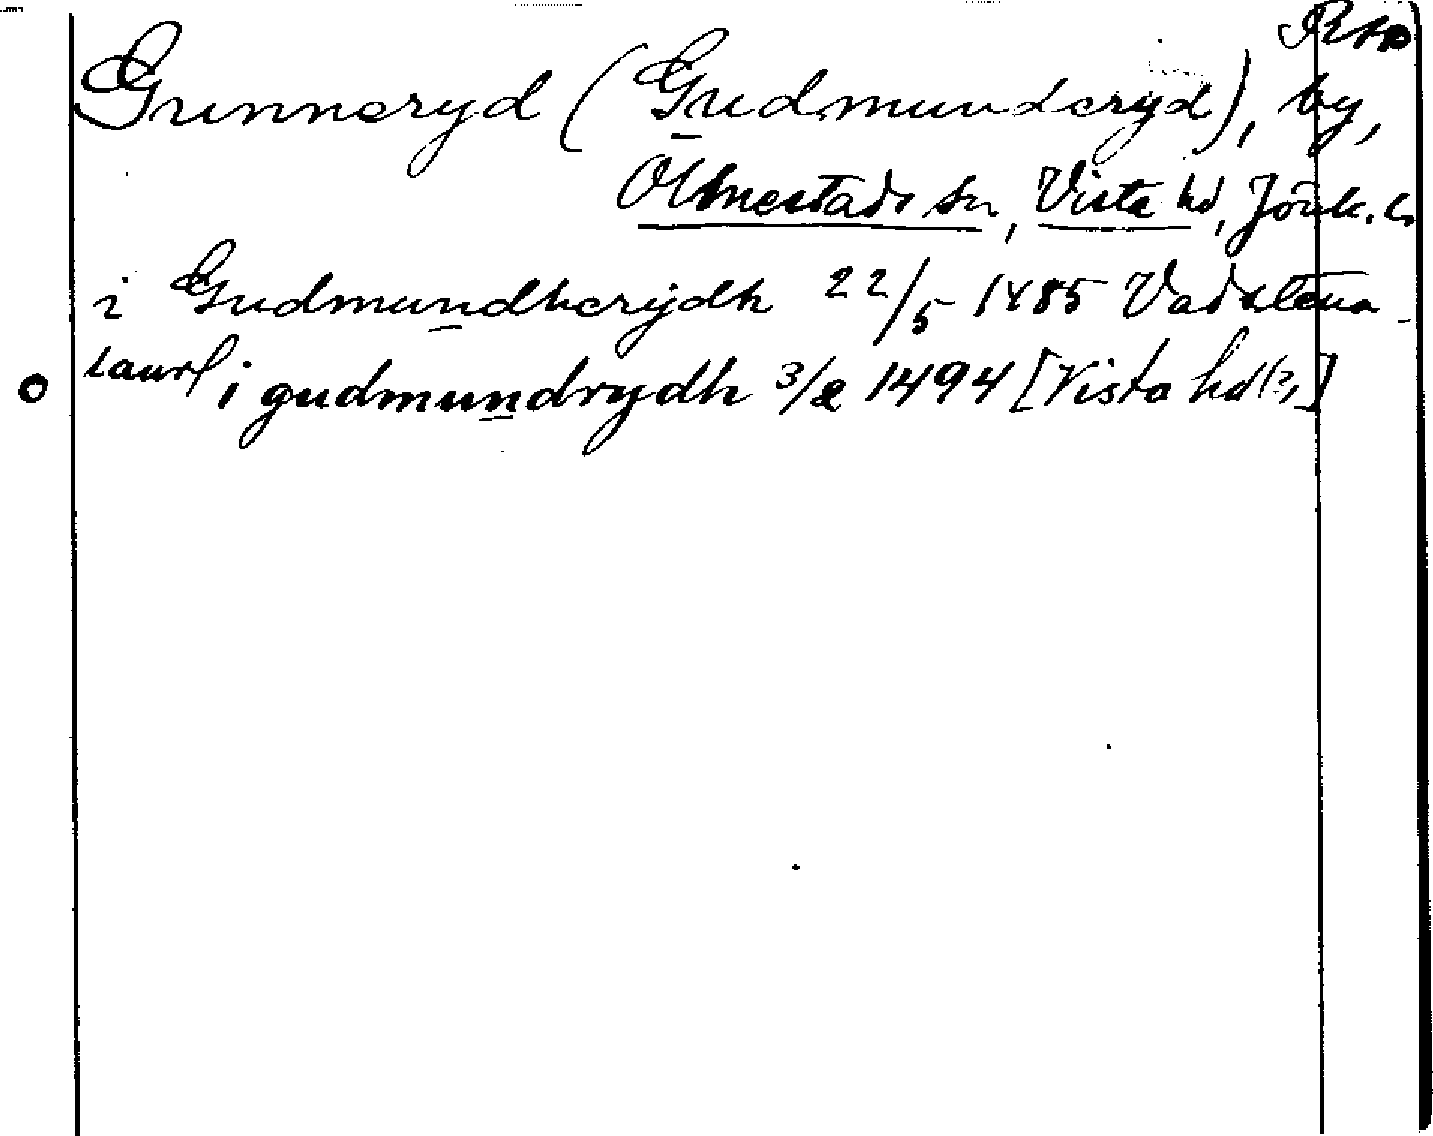 Gunneryd (Gudmunderyd), by,
Ölmestads sn, Vista hd, Jönk. l.
i Gudmundherydh 22/5 1485 Vadstena
i gudmundrydh 3/2 1494 [Vista hd(?)]